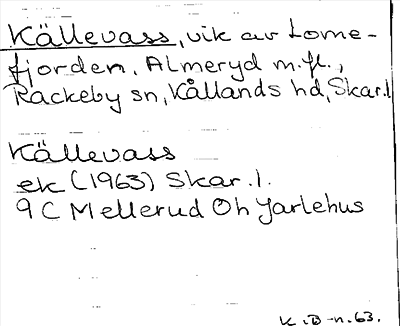 Källevass, vik av Lome-
fjorden, Almeryd m.fl.,
Rackeby sn, Kållands hd, Skar.l
Källevass
ek (1963) Skar.l.
9 C Mellerud Öh Jarlehus
K.B-n.63.